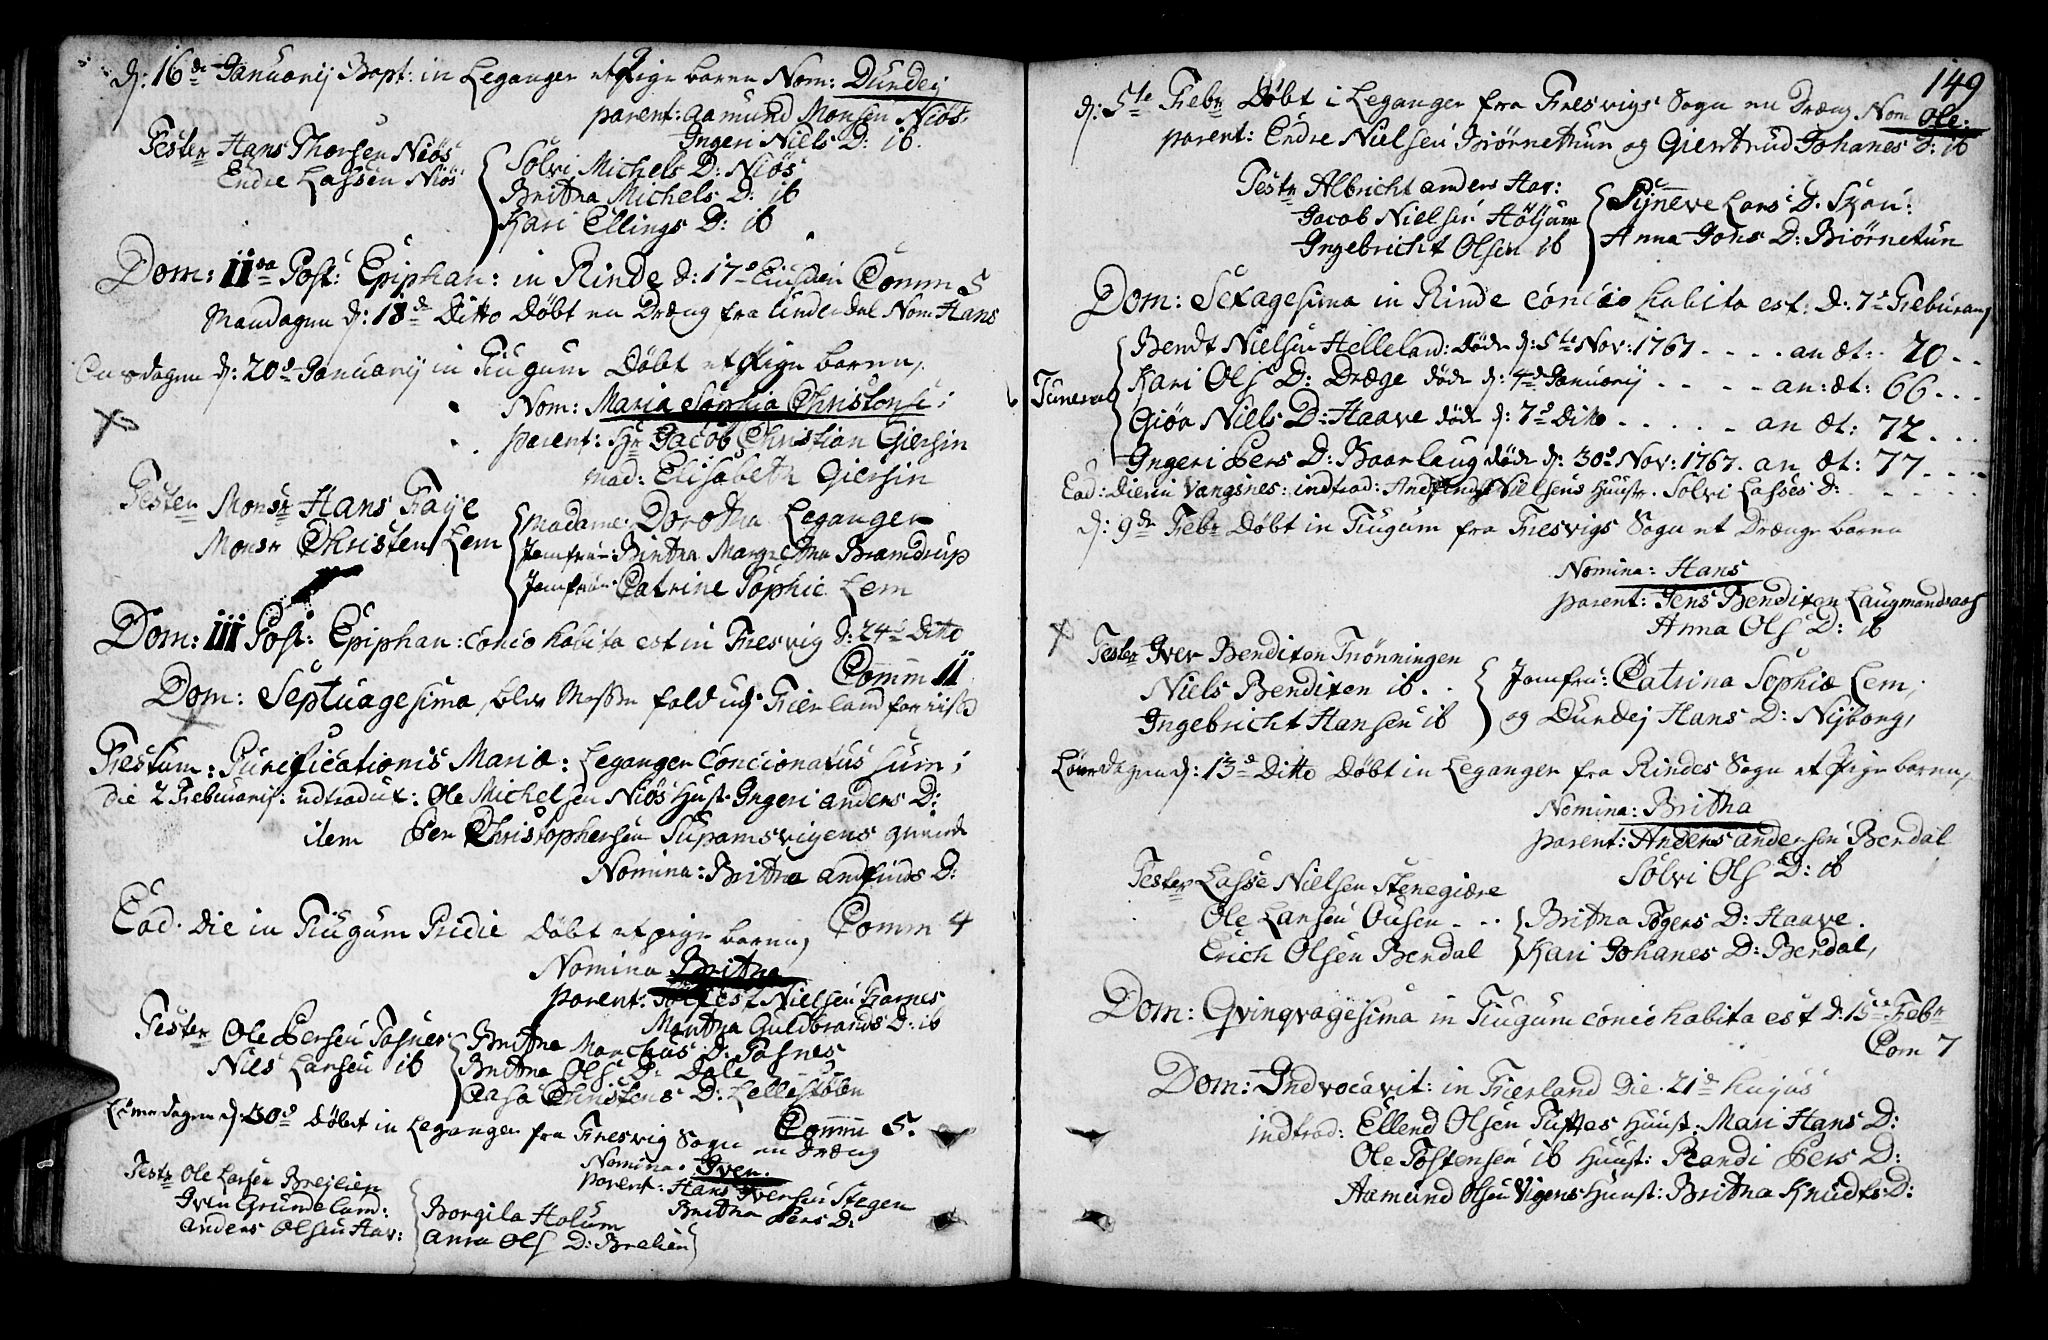 d: 16de Januarij Bapt: in Leganger et Pige baren Nom: Durdej
parent: Aamund Monsen Niøs.
Ingeri Niels D: ib.
Tester Hans Thorsen Niøs
Endre Lassen Niøs
Sølvi Michels D: Niøs
Britha Michels D: ib
Kari Ellings D: ib
Dom: IIda Post: Epiphan: in Rinde d: 17de Ejusdem Comm 5
Mandagen d: 18de Ditto Døbt en Dræng fra Underdal Nom Hans
Onsdagen d: 20de Januarij in Tiugum Døbt et Pige baren,
Nom: Maria Sophia
parent: Hr Jacob Christian Giersin
Mad: Elisabeth Giersin
Tester Monsr Hans Faye
Monsr Christen Lem
Madame: Dorothea Leganger
Jomfrue: Britha Margretha Brandrup
Jomfrue: Catrine Sophie Lem
Dom: III Post: Epiphan: concio habita est in Fresvig d: 24de Ditto
Comm 11
Dom: Septuagesima, blev Messe fald udj Fierland for
Festum: Purificationis Mariæ: Leganger concionatus sum;
die 2 Februarij: introduct: Ole Michelsen Niøs Hust. Ingeri Anders D:
item Per Christophersen Supamsvigens qvinde
Nomina: Britha Andfinds D:
Ead. Die in Tiugum Døbt et pige baren, Comm 4
Nomina Britha
parent: Tolfest Nielsen Farnes
Martha Guldbrands D: ib
Tester Ole Persen Fosnes
Niels Larsen ib
Britha Marchus D: Fosnes
Britha Ols D: Dale
Aasa Christens D: Lillestølen
Comm 5.
Løverdagen d: 30de Døbt in Leganger fra Fresvig Sogn en Dræng
Nomina: Iver.
parent: Hans Iversen Stegen
Britha Pers D:
Testr Ole Larsen Brejlien
Iver Grundeland:
Anders Olsen Hav:
Borgila Holum
Anna Ols D: Brelien
149
d: 5te Febr Døbt i Leganger fra Fresvigs Sogn en Dræng Nom Ole:
parent: Endre Nielsen Biørnethun og Giertrud Johanes D: ib
Testr Albricht Anders Hav:
Jacob Nielsen Høljum
Ingebricht Olsen ib
Synneve Lars D. Skou:
Anna Johs D: Biørnetun
Dom: Sexagesima in Rinde concio habita est: d: 7de Februarij
Funeral
Bendt Nielsen Helleland: døde d: 5te Nov: 1767 . . . . an æt: 20 . .
Kari Ols D: Dræge døde d: 4de Januarij - - - - an: æt: 66 . . .
Giøa Niels D: Haave døde d: 7de Ditto . . . . - an æt: 72 . . .
Ingeri Pers D: Baarlaug døde d: 30de Nov: 1767. an æt: 77 . . .
Ead: Die in Vangsnes: introd: Andfind Nielsens Huust. Sølvi Lasses D:
d: 9de Febr Døbt in Tiugum fra Fresvigs Sogn et Drænge baren
Nomina: Hans
parent: Jens Bendixen Laugmandsaas
Anna Ols D: ib
Tester Iver Bendixen Trønningen
Niels Bendixen ib . .
Ingebricht Hansen ib
Jomfru: Catrina Sophia Lem,
og Durdej Hans D: Nyborg,
Løverdagen d: 13de Ditto Døbt in Leganger fra Rindes Sogn et Pige baren,
Nomina: Britha
parent: Anders Andersen Bendal
Sølvi Ols D: ib
Tester Lasse Nielsen Stenegiære
Ole Larsen Ousen . . .
Erich Olsen Bendal
Britha Togers D: Haave.
Kari Johanes D: Bendal,
Dom: Qvinqvagesima in Tiugum concio habita est d: 15de Febr
Com 7
Dom: Indvocavit: in Fierland Die. 21de hujus
introd: Ellend Olsen Tuftes Huust. Mari Hans D:
Ole Tostensen ib Huust: Randi Pers D:
Aamund Olsen Vigens Huust: Britha Knudts D: